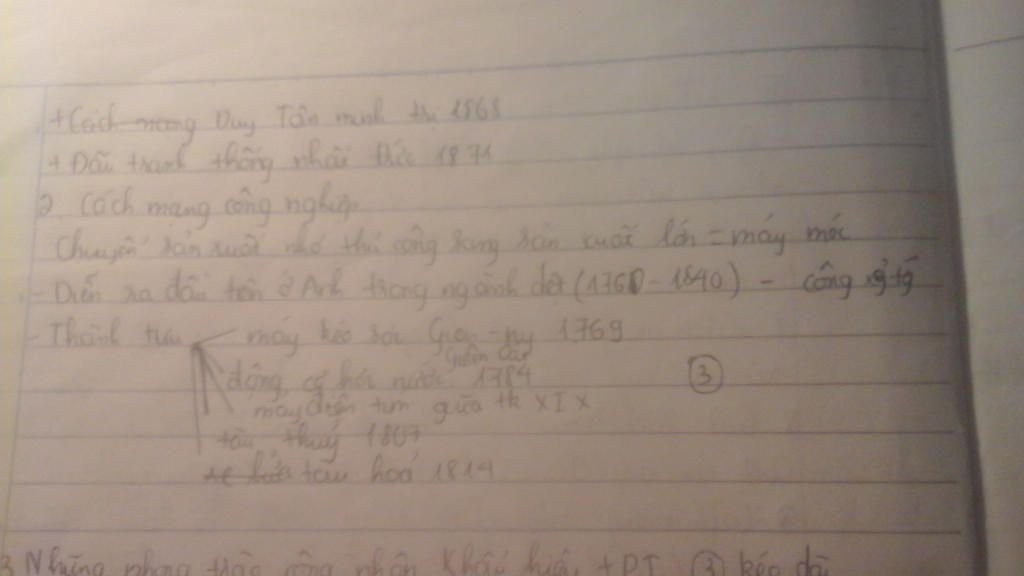 + Cách mạng Duy Tân minh trị 1868
+ Đấu tranh thống nhất Đức 1871
2 Cách mạng công nghiệp
Chuyển sản xuất nhỏ thủ công sang sản xuất lớn = máy móc
- Diễn ra đầu tiên ở Anh trong ngành dệt (1760 - 1840) - công
- Thành tựu máy kéo sợi Gien-ny 1769
Giêm Oát
động cơ hơi nước 1784 3
máy điện tín giữa tk XIX
tàu thuỷ 1807
xe lửa tàu hoả 1814
3 Những phong trào công nhân Khẩu hiệu + PT 3 kéo dài